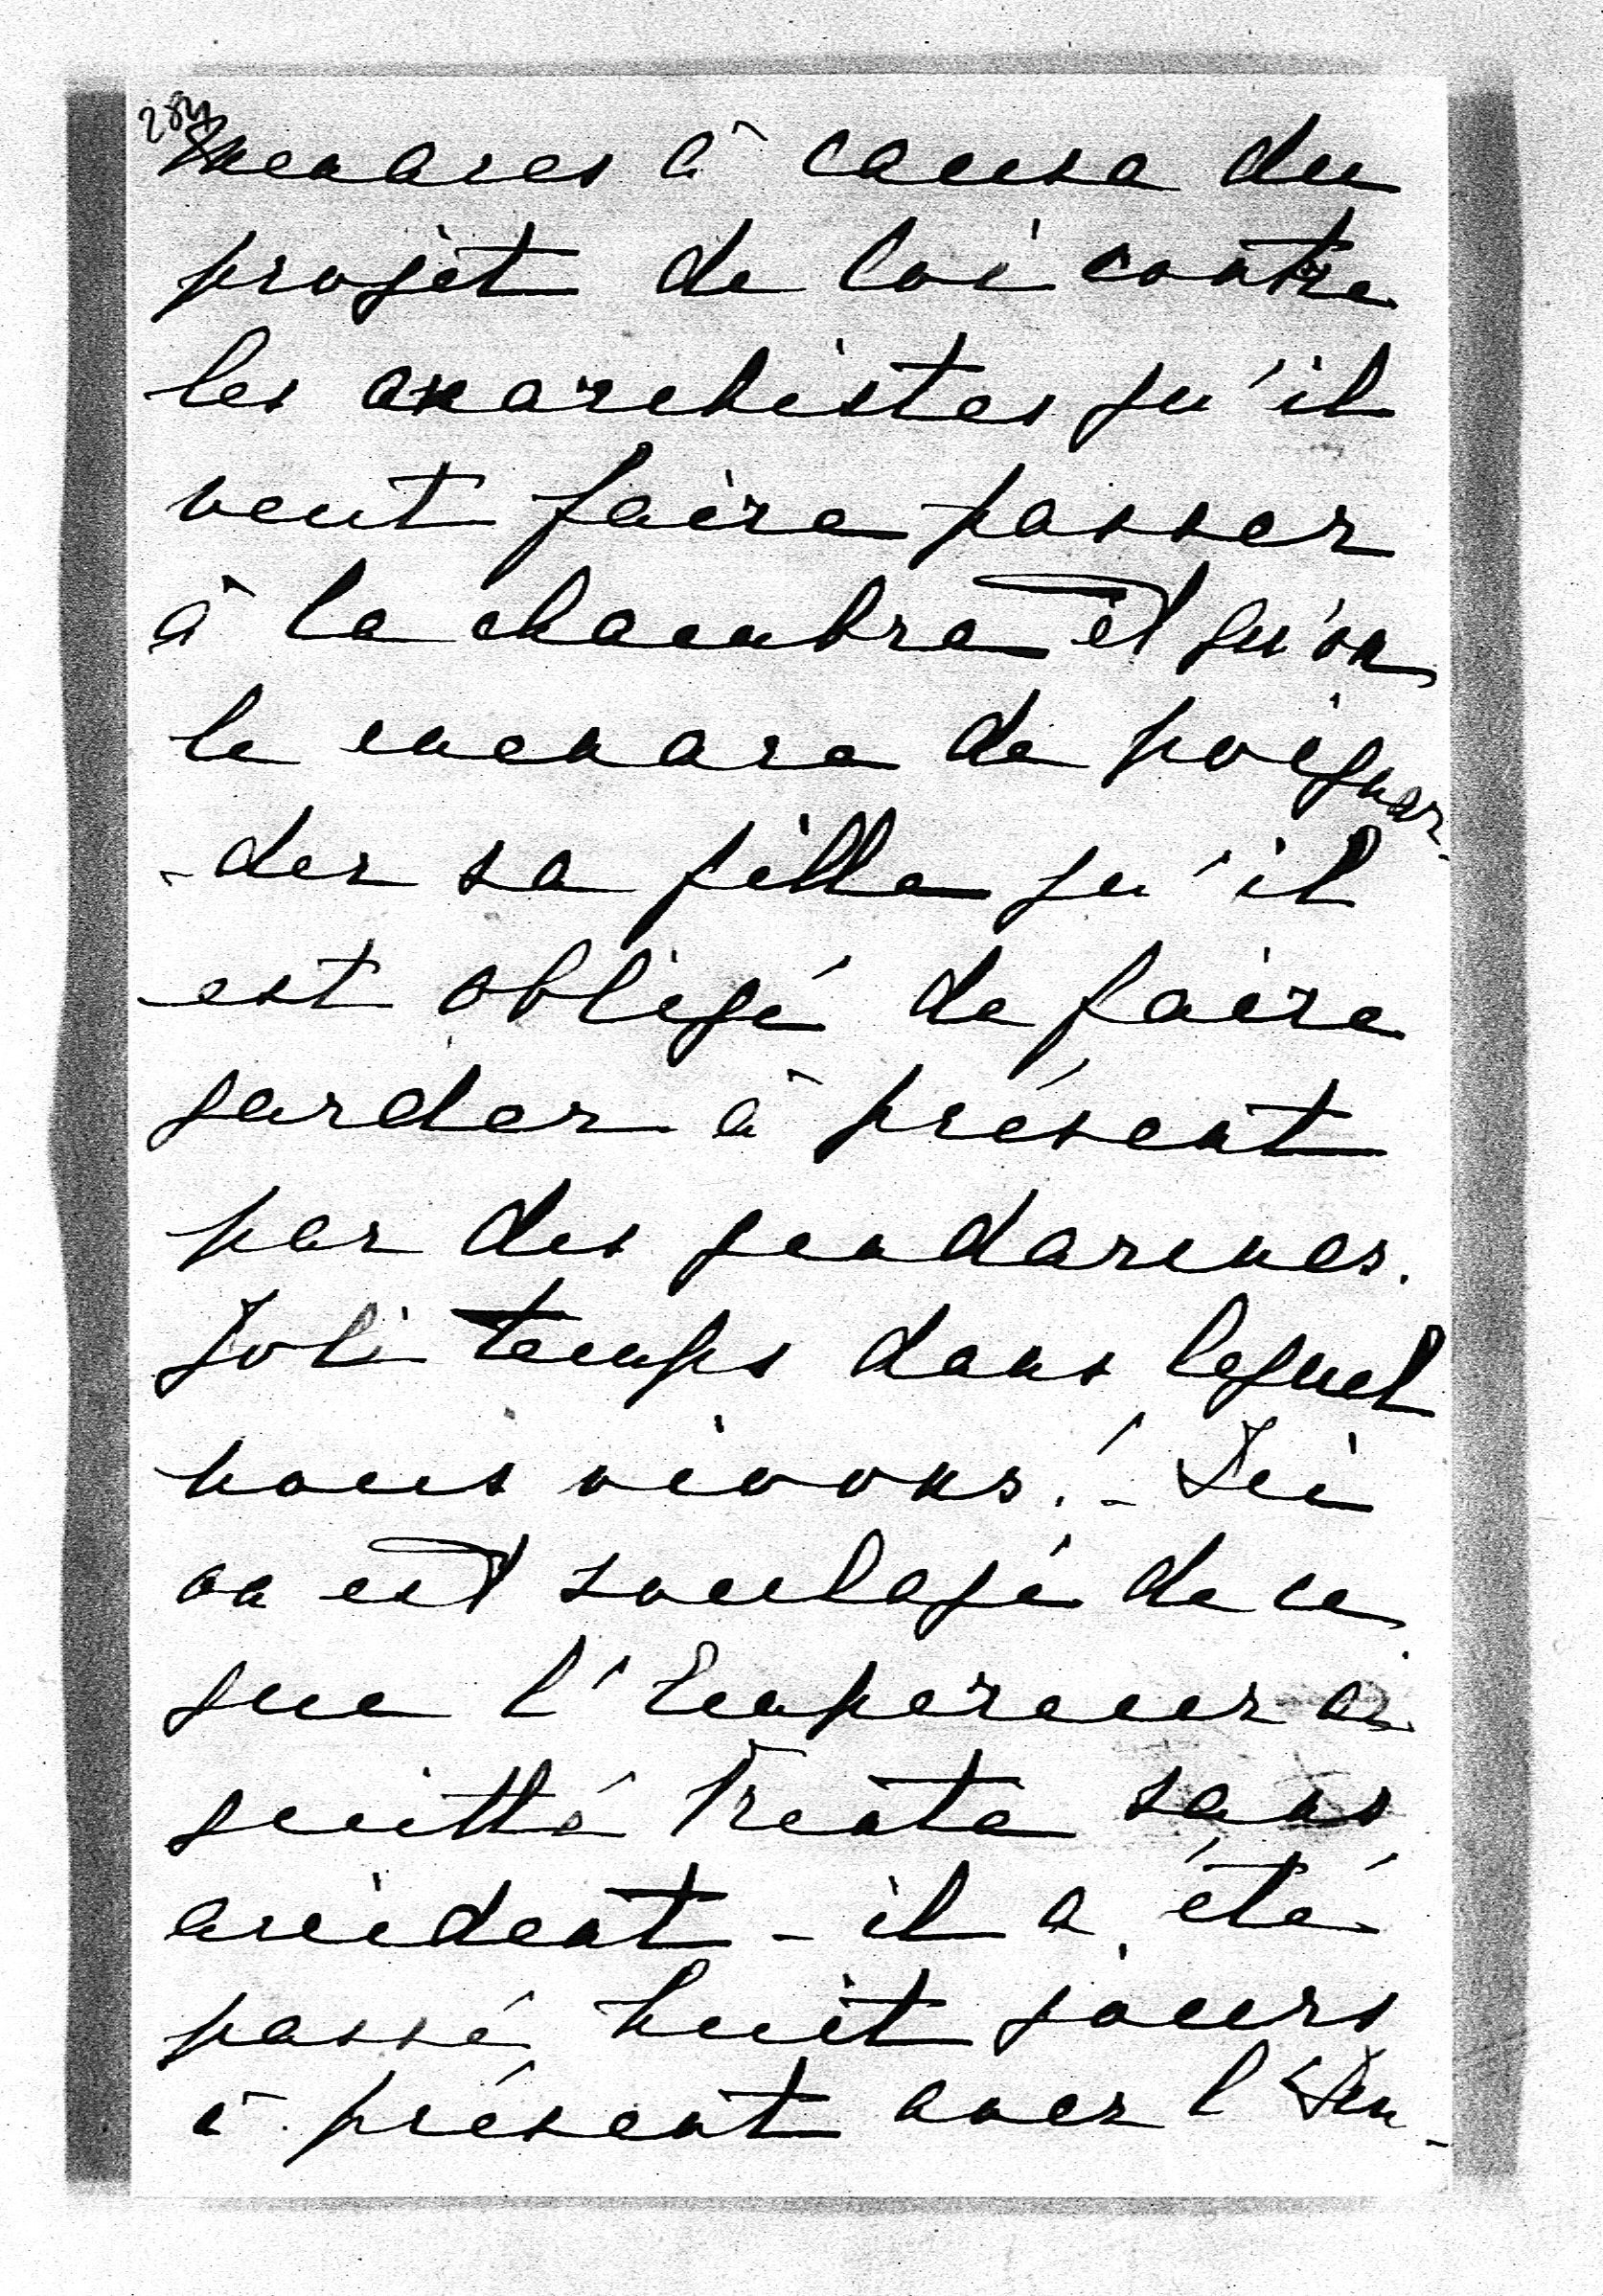 284
menaces à cause du
projet de loi contre
les anarchistes qu'il
veut faire passer
à la chambre et qu'on
le menace de poignar-
-der sa fille qu'il
est obligé de faire
garder à présent
par des gendarmes.
Joli temps dans lequel
nous vivons! - Ici
on est soulagé de ce
que l'Empereur a
quitté Trente sans
accident - il a été
passé huit jours
à présent avec l'Im-